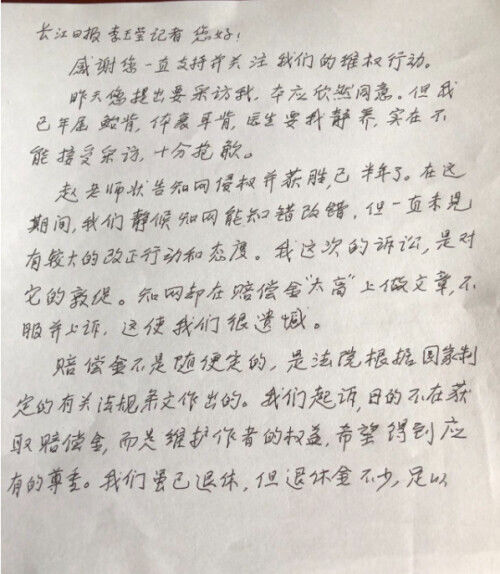 长江日报 李玉莹记者 您好：
感谢您一直支持并关注我们的维权行动。
昨天您提出要采访我，本应欣然同意。但我
已年届鲐背，体衰耳背，医生要我静养，实在不
能接受采访，十分抱歉。
赵老师状告知网侵权并获胜，已半年了。在这
期间，我们静候知网能知错改错，但一直未见
有较大的改正行动和态度。我这次的诉讼，是对
它的敦促。知网却在赔偿金“太高”上做文章，不
服并上诉，这使我们很遗憾。
赔偿金不是随便定的，是法院根据国家制
定的有关法规条文作出的。我们起诉，目的不在获
取赔偿金，而是维护作者的权益，希望得到应
有的尊重。我们虽已退休，但退休金不少，足以